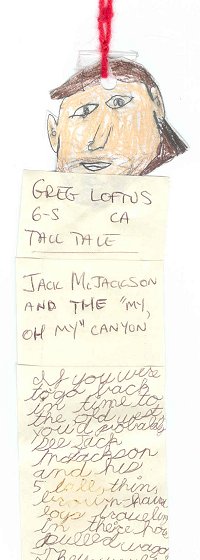 GREG LOFTUS
6-S CA
TALL TALE
JACK McJACKSON
AND THE "MY,
OH MY" CANYON
If you were
to go back
in time to
the old west
you'd probably
see Jack
McJackson
and his
5, tall, thin,
brown-haired
boys traveling
in there horse
pulled wagon